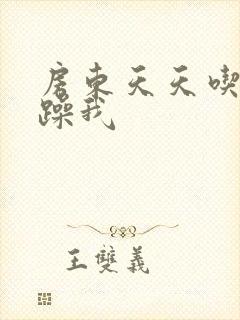 房東天天喫
躁我
王雙義